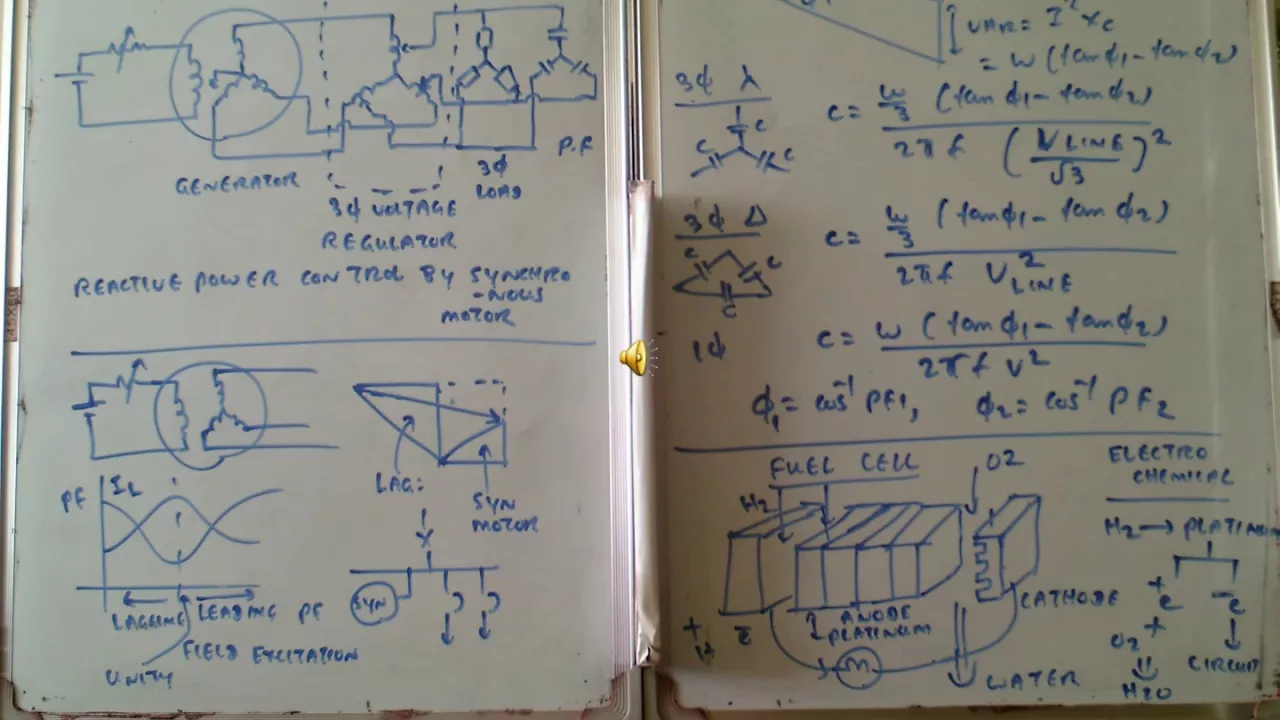 GENERATOR
3φ VOLTAGE
REGULATOR
3φ
LOAD
P.F
REACTIVE POWER CONTROL BY SYNCHRO
-NOUS
MOTOR
PF
IL
LAGGING
LEADING PF
FIELD EXCITATION
UNITY
LAG:
SYN
MOTOR
SYN
VAR = I² XC
= W (tanφ1 - tanφ2)
3φ λ
C
C
C
C = W/3 (tanφ1 - tanφ2) / 2πf (VLINE/√3)²
3φ Δ
C
C
C
C = W/3 (tanφ1 - tanφ2) / 2πf V²LINE
1φ
C = W (tanφ1 - tanφ2) / 2πf V²
φ1 = cos⁻¹ PF1, φ2 = cos⁻¹ PF2
FUEL CELL
H2
O2
ANODE
PLATINUM
CATHODE
WATER
M
ELECTRO
CHEMICAL
H2 → PLATINUM
+e
-e
O2 +
CIRCUIT
H2O